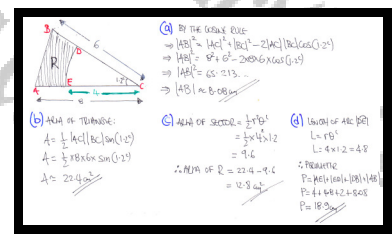 B
6
D
R
1.2ᶜ
A
E
C
4
8
(a) BY THE COSINE RULE
⇒ |AB|² = |AC|² + |BC|² - 2|AC||BC|cos(1.2ᶜ)
⇒ |AB|² = 8² + 6² - 2×8×6×cos(1.2ᶜ)
⇒ |AB|² = 65.213...
⇒ |AB| ≈ 8.08 cm
(b) AREA OF TRIANGLE:
A = ½ |AC||BC| sin(1.2ᶜ)
A = ½ × 8 × 6 × sin(1.2ᶜ)
A ≈ 22.4 cm²
(c) AREA OF SECTOR = ½r²θᶜ
= ½ × 4² × 1.2
= 9.6
∴ AREA OF R = 22.4 - 9.6
= 12.8 cm²
(d) LENGTH OF ARC |DE|
L = rθᶜ
L = 4 × 1.2 = 4.8
∴ PERIMETER
P = |AE| + |ED| + |DB| + |AB|
P = 4 + 4.8 + 2 + 8.08
P = 18.9 cm